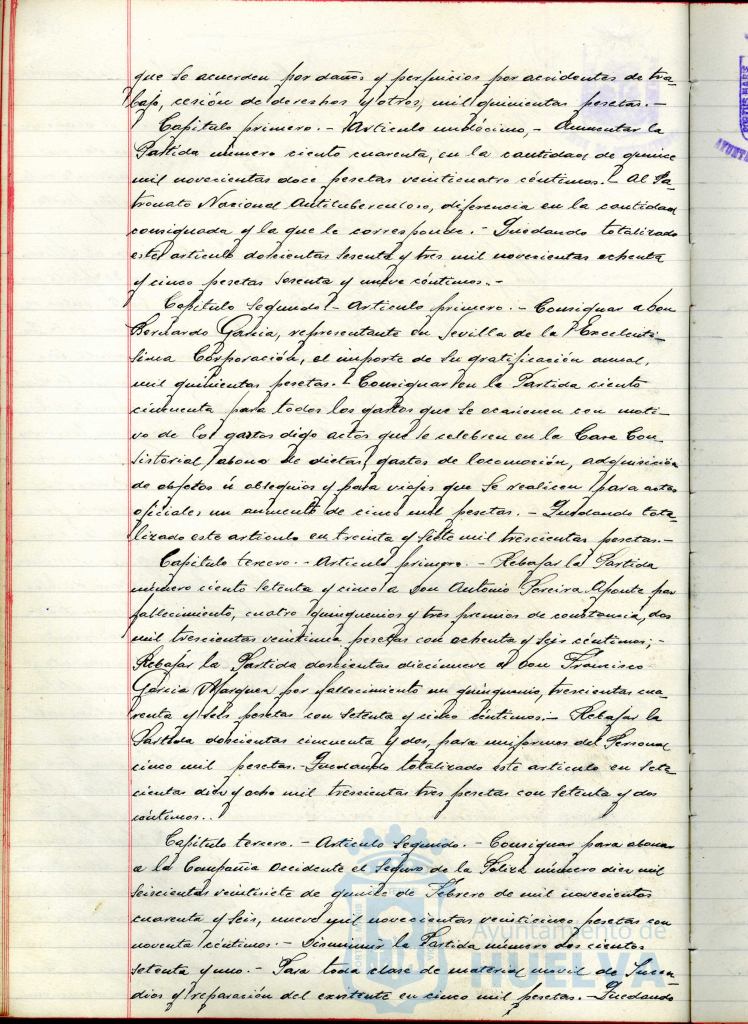 que se acuerden por daños y perjuicios por accidentes de tra-
bajo, cesión de derechos y otros, mil quinientas pesetas.-
Capítulo primero.- Artículo undécimo,- Aumentar la
Partida número ciento cuarenta, en la cantidad de quince
mil novecientas doce pesetas veinticuatro céntimos.- Al Pa-
tronato Nacional Antituberculoso, diferencia en la cantidad
consignada y la que le corresponde.- Quedando totalizado
este artículo doscientas sesenta y tres mil novecientas ochenta
y cinco pesetas sesenta y nueve céntimos.-
Capítulo Segundo.- Artículo primero.- Consignar a Don
Bernardo García, representante en Sevilla de la Excelentí-
sima Corporación, el importe de su gratificación anual,
mil quinientas pesetas.- Consignar en la Partida ciento
cincuenta para todos los gastos que se ocasionen con moti-
vo de los gastos digo actos que se celebren en la Casa Con-
sistorial, abono de dietas, gastos de locomoción, adquisición
de objetos u obsequios y para viajes que se realicen para actos
oficiales un aumento de cinco mil pesetas.- Quedando tota-
lizado este artículo en treinta y siete mil trescientas pesetas.-
Capítulo tercero.- Artículo primero.- Rebajar la Partida
número ciento setenta y cinco a Don Antonio Pereira Aponte por
fallecimiento, cuatro quinquenios y tres premios de constancia, dos
mil trescientas veintiuna pesetas con ochenta y seis céntimos;-
Rebajar la Partida doscientas diecinueve a Don Francisco
García Marquez por fallecimiento un quinquenio, trescientas cua-
renta y seis pesetas con setenta y cinco céntimos.- Rebajar la
Partida doscientas cincuenta y dos, para uniformes del Personal
cinco mil pesetas.- Quedando totalizado este artículo en sete-
cientas diez y ocho mil trescientas tres pesetas con setenta y dos
céntimos..
Capítulo tercero.- Artículo Segundo.- Consignar para abonar
a la Compañía Occidente el Seguro de la Póliza número diez mil
seiscientas veintisiete de quince de Febrero de mil novecientos
cuarenta y seis, nueve mil novecientas veinticinco pesetas con
noventa céntimos.- Disminuir la Partida número dos cientos
setenta y uno.- Para toda clase de material móvil de Incen-
dios y reparación del existente en cinco mil pesetas.- Quedando
Ayuntamiento de
HUELVA